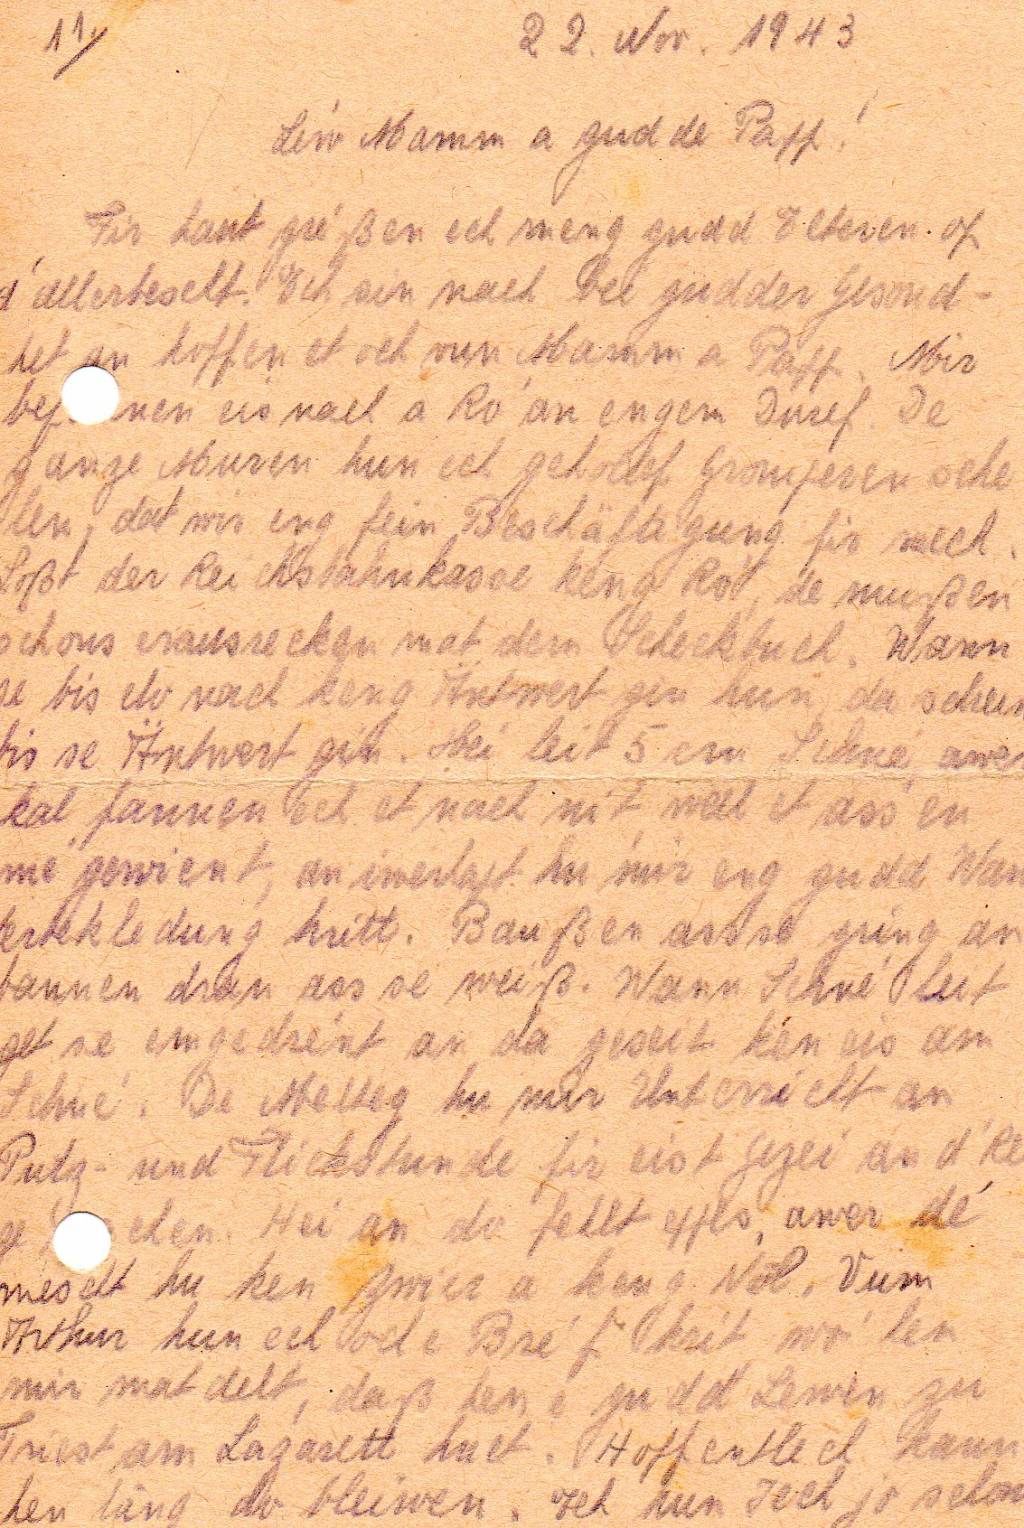 11/
22. Nov. 1943
Léiw Mamm a gudde Papp!
Fir haut gréßen ech meng gudd Elteren of
d'allerbescht. Ech sin nach bei gudder Gesond-
het an hoffen et och vun Mamm a Papp. Mir
bef nen eis nach a Ro' an engem Duref. De
ganze Muren hun ech gehollef Gromperen sche
len, dat wir eng fein Beschäftegung fir mech.
Loßt der Reichsbahnkasse keng Rôt, de mußen
schons erausrecken mat dem Scheckbuch. Wann
se bis elo nach keng Äntwert gin hun, da schreiw
bis se Äntwert gin. Hei leit 5 cm Schné awer
kal fannen ech et nach nit, well et ass en
mé gewient, an iwerhapt hu mir eng gudd Wan
terbekledung kritt. Baußen ass se gring an
bannen dran ass se weiß. Wann Schné leit
get se emgedréint an da geseit ken eis am
Schné. De Metteg hu mir Unterricht an
Putz- und Flickstunde fir eist Gezei an d'Re
ge chen. Hei an do feelt eppes, awer dé
mescht hu ken Zwier a keng Nol. Vum
Arthur hun ech och e Bréf krit wo' hen
mir mat delt, daß hen e gudd Lewen zu
Triest am Lazarett huet. Hoffentlech kann
hen läng do bleiwen. Ech hun Iech jo schon